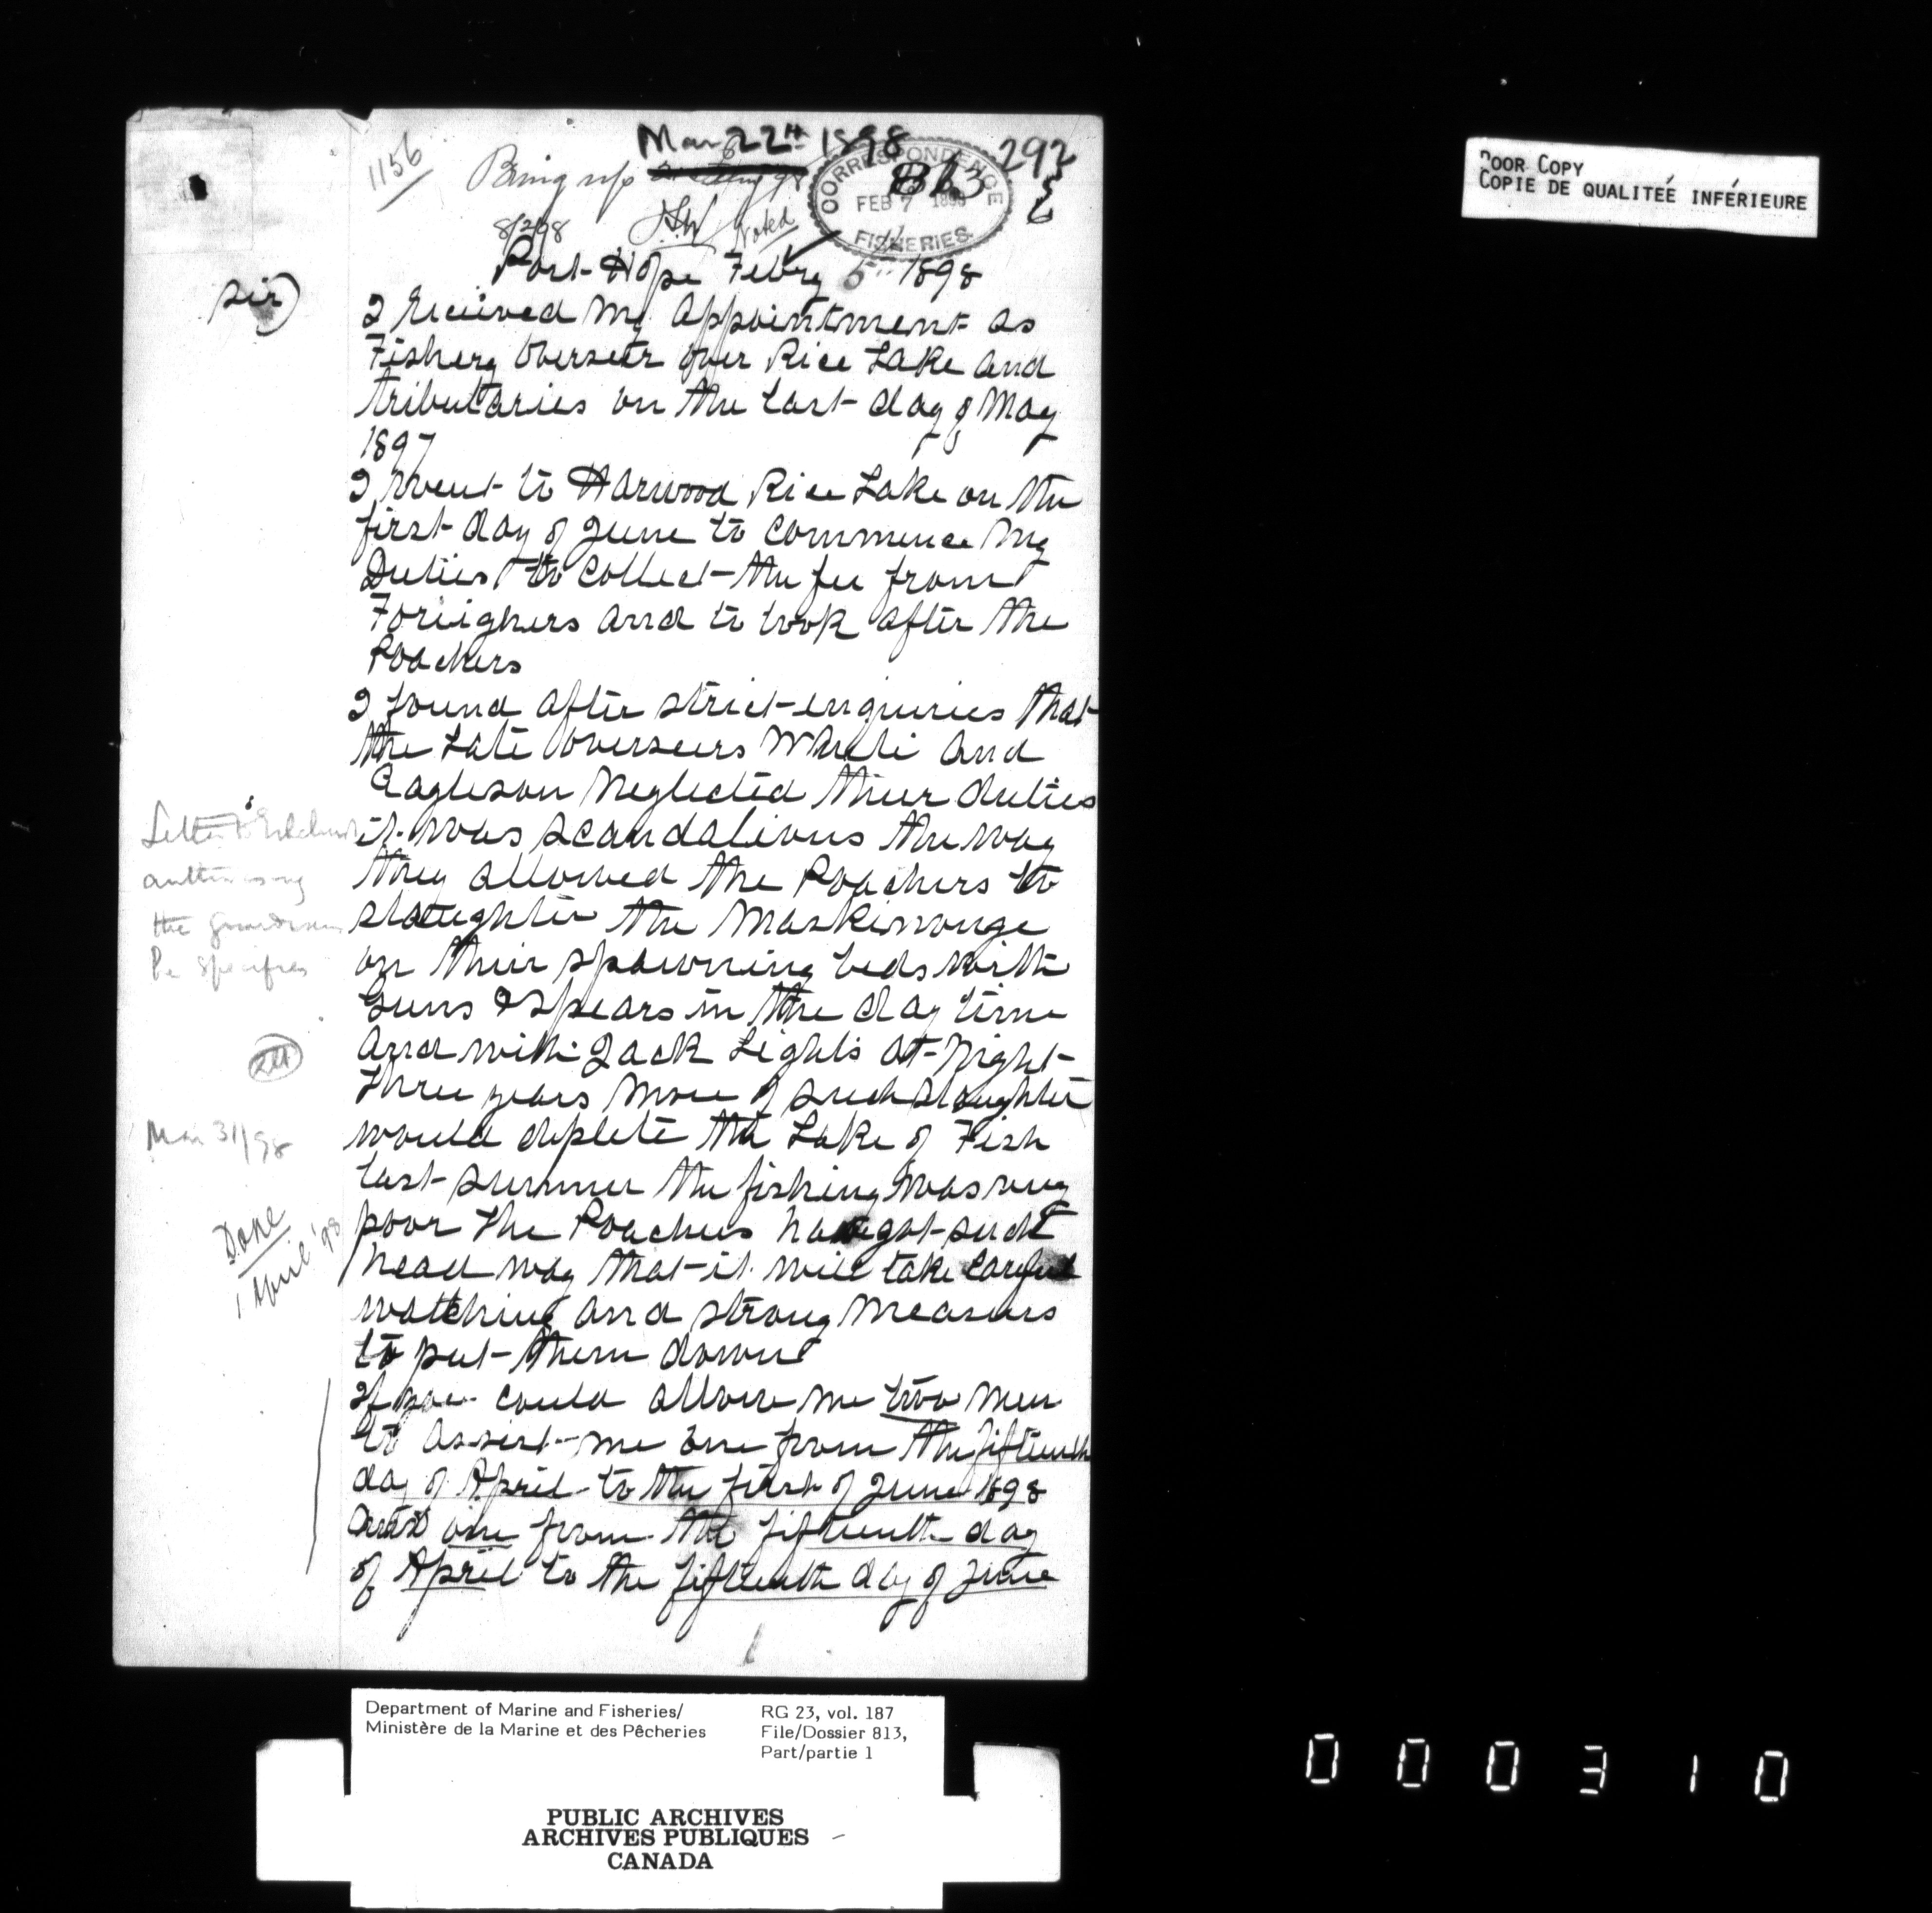 Mar 22nd 1898
292
1156
Bring up
CORRESPONDENCE
813
FEB 7 1898
FISHERIES
8/2/98
Noted
Port Hope Febry 5" 1898
Sir)
I Received my Appointment as
Fishery Overseer over Rice Lake and
tributaries on the last day of May
1897
I went to Harwood Rice Lake on the
first day of June to commence my
Duties to Collect the fee from
Foreighers and to look after the
Poachers
I found after strict enquiries that
the Late Overseers White and
Eagleson Neglected their duties
it was scandalious the way
they allowed the Poachers to
slaughter the Maskinonge
on their spawning beds with
Guns & Spears in the day time
and with Jack Lights at Night
three years more of such slaughter
would deplete the Lake of Fish
last summer the fishing was very
poor the Poachers have got such
head way that it will take careful
watching and strong measurs
to put them down
If you could allow me two men
to assist me one from the fifteenth
day of April to the first of June 1898
and one from the fifteenth day
of April to the fifteenth day of June
Letter to
the
be
Mar 31/98
Done
1 April '98
POOR COPY
COPIE DE QUALITEÉ INFÉRIEURE
Department of Marine and Fisheries/
Ministère de la Marine et des Pêcheries
RG 23, vol. 187
File/Dossier 813,
Part/partie 1
PUBLIC ARCHIVES
ARCHIVES PUBLIQUES
CANADA
000310